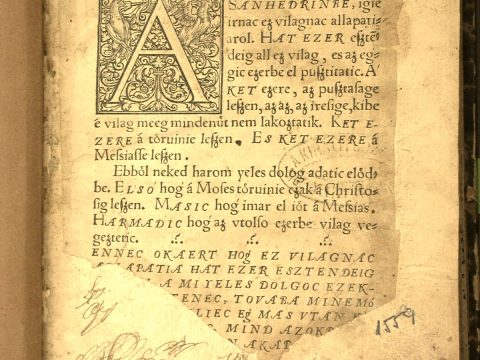 A SANHEDRINBE, igie
irnac ez vilagnac allapati
arol. HAT EZER eſztē
deig all ez vilag, es az eg
gic ezerbe el puſztitatic. Á
KET ezere, az puſztasage
leſzen, az az, az ireſige, kibe
ė vilag meeg mindenūt nem lakoztatik. KET E-
ZERE á tōruinie leſzen. ES KET EZERE á
Meſsiasſe leſzen.
Ebbōl neked harom yeles dolog adatic elōd-
be. ELSO hog á Moses tōruinie czak á Chriſto-
ſig leſzen. MASIC hog imar el iōt á Meſsias.
HARMADIC hog az vtolso ezerbe vilag ve-
geztetic.
ENNEC OKAERT HOG EZ VILAGNAC
ALLAPATIA HAT EZER ESZTENDEIG
A MI YELES DOLGOC EZEK-
TENEC, TOVABA MINEMŌ
LIEC EG MAS VTAN
MIND AZOK
AKAR
1559